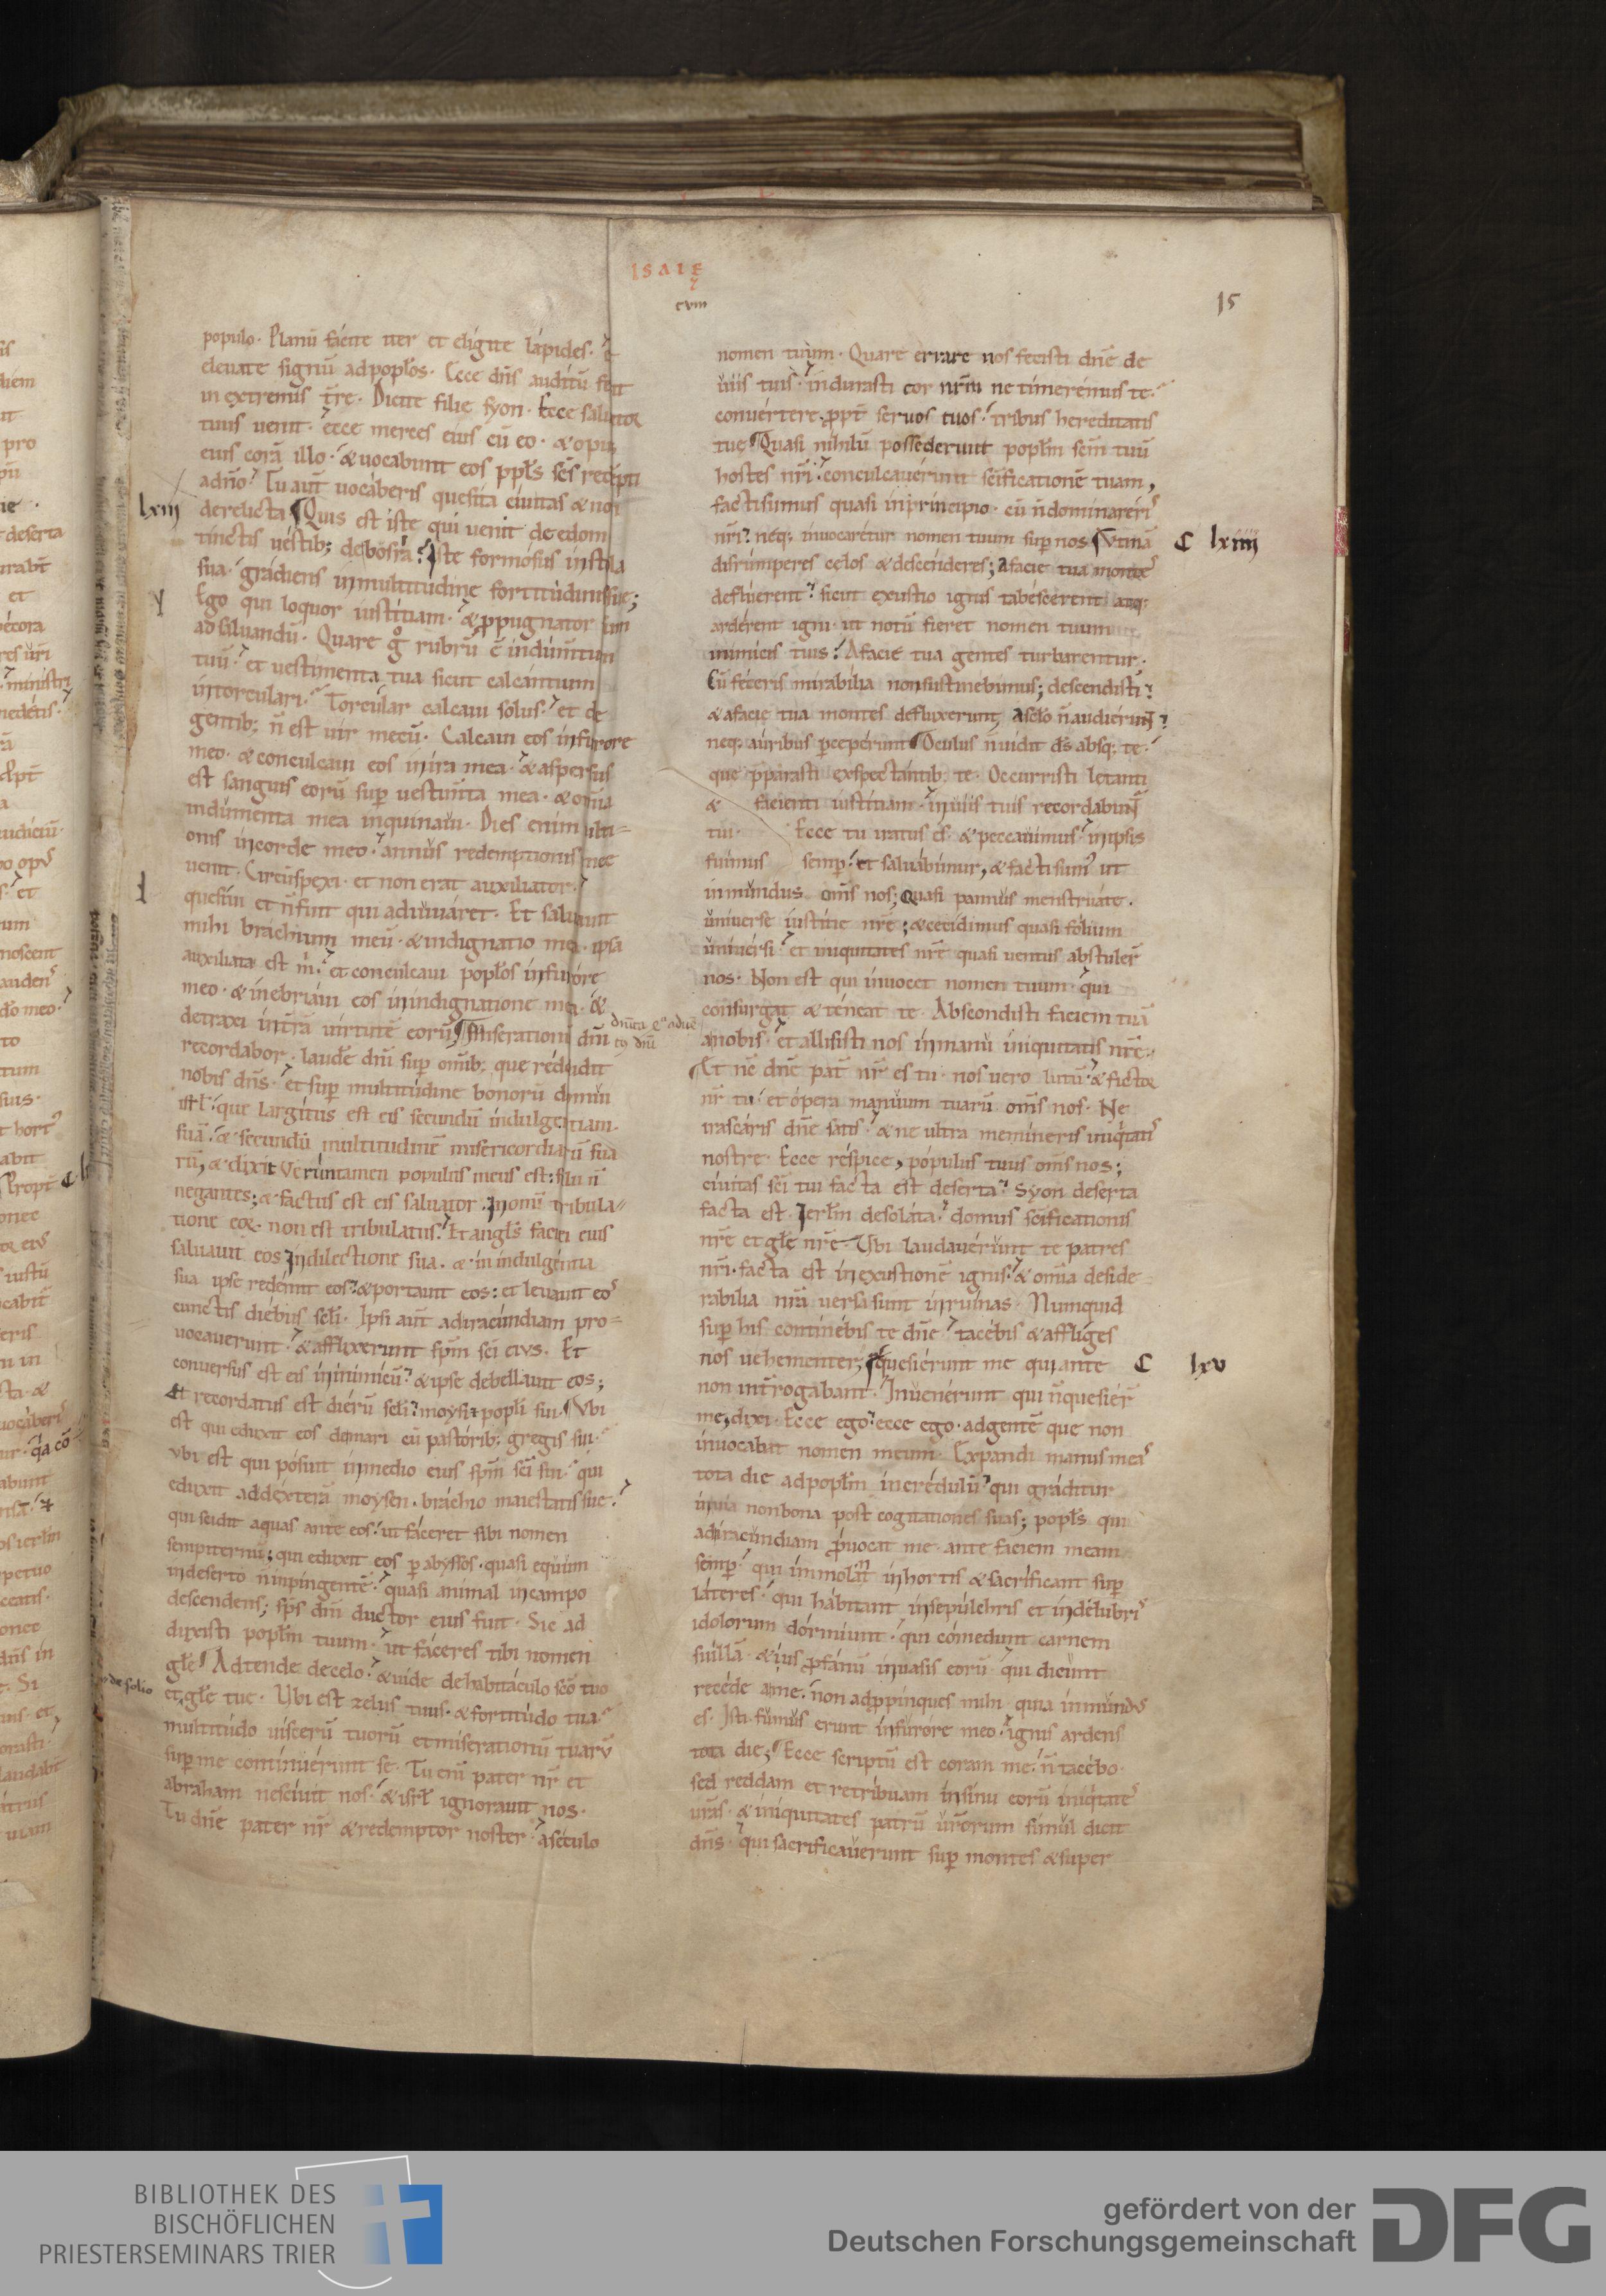 ISAIE
cviii
15
populo. Planū facite iter et eligite lapides. &
eleuate signū ad popl̄os. Ecce dn̄s auditū fecit
in extremis t̄re. Dicite filie syon. Ecce saluator
tuus uenit. ecce merces eius cū eo. & opus
eius corā illo. & uocabunt eos ppl̄s sc̄s redēpti
a dn̄o. Tu aut̄ uocaberis quesita ciuitas & non
lxiii
derelicta Quis est iste qui uenit de edom
tinctis uestib; de bosra? Iste formosus in stola
sua. gradiens in multitudine fortitudinis sue;
Ego qui loquor iustitiam. & ppugnator sum
ad saluandū. Quare g̊ rubrū ē indumtum
tuū. et uestimenta tua sicut calcantium
in torculari. Torcular calcaui solus. et de
gentib; n̄ est uir mecū. Calcaui eos in furore
meo. & conculcaui eos in ira mea. & aspersus
est sanguis eorū sup uestimta mea. & omīa
indumenta mea inquinaui. Dies enim ulti=
onis in corde meo. annus redemptionis mee
uenit. Circūspexi. et non erat auxiliator.
quesiui et n̄ fuit qui adiuuaret. Et saluauit
mihi brachium meū. & indignatio mea ipsa
auxiliata est m̄. et conculcaui popl̄os in furore
meo. & inebriaui eos in indignatione mea. &
detraxi in t̄rā uirtutē eorū Miserationū dn̄i
recordabor. laudē dn̄i sup om̄ib; que reddidit
nobis dn̄s. et sup multitudine bonorū domui
isrl̄. que largitus est eis secundū indulgentiam.
suā. & secundū multitudinē misericordiarū sua
rū, & dixit Veruntamen populus meus est: filii n̄
negantes; & factus est eis saluator. In omī tribula=
tione eoꝝ non est tribulatus. Et angl̄s faciei eius
saluauit eos In dilectione sua. & in indulgentia
sua ipse redemit eos. & portauit eos: et leuauit eos
cunctis diebus sc̄li. Ipsi aut̄ ad iracundiam pro=
uocauerunt. & afflixerunt sp̄m sc̄i eius. Et
conuersus est eis in inimicū. & ipse debellauit eos;
Et recordatus est dierū sc̄li. moysi & popl̄i sui. Vbi
est qui eduxit eos de mari cū pastorib; gregis sui.
vbi est qui posuit in medio eius sp̄m sc̄i sui. qui
eduxit ad dexterā moysen. brachio maiestatis sue.
qui scidit aquas ante eos. ut faceret sibi nomen
sempiternū; qui eduxit eos p abyssos. quasi equum
in deserto n̄ inpingentē. quasi animal in campo
descendens; sp̄s dn̄i ductor eius fuit. Sic ad
duxisti popl̄m tuum. ut faceres tibi nomen
gl̄e Adtende de celo. & uide de habitaculo sc̄o tuo
de solio
et gl̄e tue. Vbi est zelus tuus. & fortitudo tua.
multitudo uiscerū tuorū et miserationū tuarū
sup me continuerunt se. Tu eni pater nr̄ et
abraham nesciuit nos. & isrl̄ ignorauit nos.
Tu dn̄e pater nr̄ & redemptor noster. a seculo
nomen tuum. Quare errare nos fecisti dn̄e de
uiis tuis. indurasti cor nr̄m ne timeremus te.
conuertere ppt̄ seruos tuos. tribus hereditatis
tue Quasi nihilū possederunt popl̄m sc̄m tuū
hostes nr̄i. conculcauerunt sc̄ificationē tuam,
facti sumus quasi in principio. cū n̄ dominareris
nr̄i. neq; inuocaretur nomen tuum sup nos Vtinā
C lxiiii
disrumperes celos & descenderes; A facie tua montes
defluerent. sicut exustio ignis tabescerent atq;
arderent igni. ut notū fieret nomen tuum
inimicis tuis. A facie tua gentes turbarentur.
Cū feceris mirabilia non sustinebimus; descendisti.
& a facie tua montes defluxerunt, A sc̄lo n̄ audierunt.
neq; auribus pceperunt Oculus n̄ uidit ds̄ absq; te.
que pparasti exspectantib; te. Occurristi letanti
& facienti iustitiam. in uiis tuis recordabunt̄
tui. Ecce tu iratus es. & peccauimus. in ipsis
fuimus semp. et saluabimur, & facti sum' ut
inmundus om̄s nos; Quasi pannus menstruate.
uniuerse iustitie nr̄e; & cecidimus quasi folium
uniuersi. et iniquitates nr̄e quasi uentus abstuler̄
nos. Non est qui inuocet nomen tuum. qui
consurgat & teneat te. Abscondisti faciem tuā
a nobis. et allisisti nos in manu iniquitatis nr̄e.
Et nc̄ dn̄e pat̄ nr̄ es tu. nos uero lutū. & fictor
nr̄ tu. et opera manuum tuarū om̄s nos. Ne
irascaris dn̄e satis. & ne ultra memineris iniq̄tatis
nostre. Ecce respice, populus tuus om̄s nos;
ciuitas sc̄i tui facta est deserta. Syon deserta
facta est. Ierl̄m desolata. domus sc̄ificationis
nr̄e et gl̄e nr̄e. Vbi laudauerunt te patres
nr̄i. facta est in exustionē ignis. & omīa deside
rabilia nr̄a uersa sunt in ruinas. Numquid
sup his continebis te dn̄e. tacebis & affliges
nos uehementer; Quesierunt me qui ante
C lxv
non int̄rogabant. Inuenerunt qui n̄ quesier̄
me, dixi. Ecce ego. ecce ego. ad gentē que non
inuocabat nomen meum. Expandi manus meas
tota die ad popl̄m incredulū. qui graditur
in uia non bona post cogitationes suas; popl̄s qui
ad iracundiam puocat me. ante faciem meam
semp. qui immolant in hortis & sacrificant sup
lateres. qui habitant in sepulchris et in delubris
idolorum dormiunt. qui comedunt carnem
suillā. & ius pfanū in uasis eorū. qui dicunt
recede a me. non adppinques mihi. quia inmundus
es. Isti fumus erunt in furore meo. ignis ardens
tota die; Ecce scriptū est coram me. n̄ tacebo.
sed reddam et retribuam in sinu eorū iniq̄tates
ur̄as. & iniquitates patrū ur̄orum simul dicit
dn̄s. qui sacrificauerunt sup montes & super
BIBLIOTHEK DES
BISCHÖFLICHEN
PRIESTERSEMINARS TRIER
gefördert von der
Deutschen Forschungsgemeinschaft
DFG